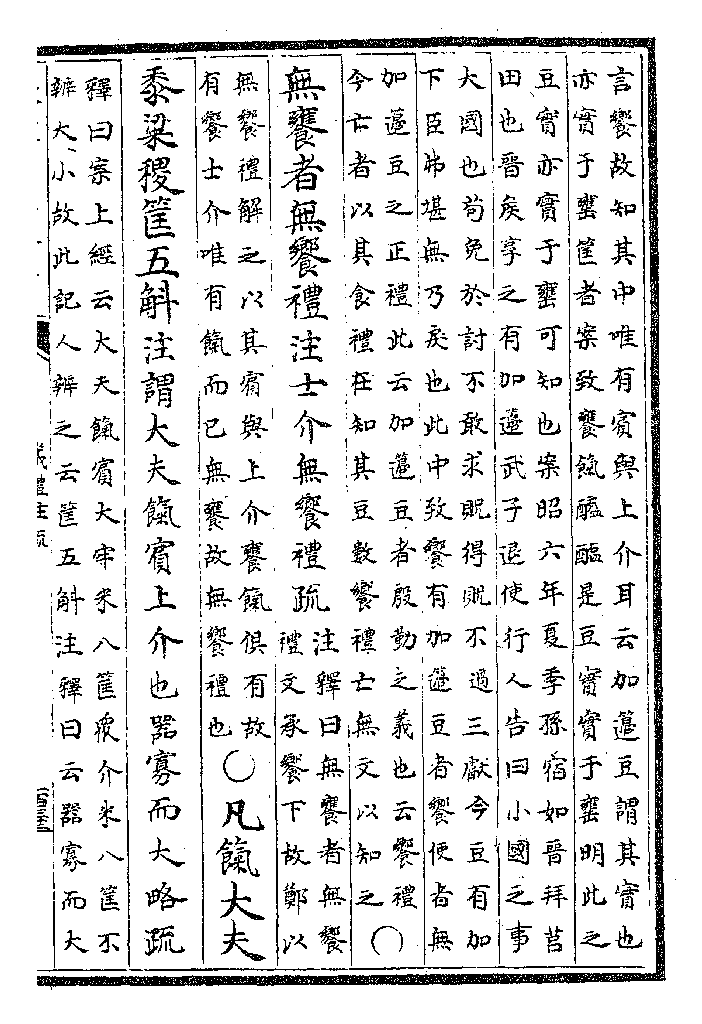 言饗故知其中唯有賓與上介耳云加籩豆謂其實也
亦實于罋筐者案致饔餼醯醢是豆實實于罋明此之
豆實亦實于罋可知也案昭六年夏季孫宿如晉拜莒
田也晉矦享之有加籩武子退使行人告曰小國之事
大國也苟免於討不敢求貺得貺不過三獻今豆有加
下臣弗堪無乃戾也此中致饗有加籩豆者饗使者無
加籩豆之正禮此云加籩豆者殷勤之義也云饗禮
今亡者以其食禮在知其豆數饗禮亡無文以知之○
無饔者無饗禮注士介無饗禮疏
注釋曰無饔者無饗
禮文承饗下故鄭以
無饗禮解之以其賓與上介饔餼俱有故
有饗士介唯有餼而已無饔故無饗禮也
○凡餼大夫
黍粱稷筐五斛注謂大夫餼賓上介也器寡而大略疏
釋曰案上經云大夫餼賓大牢米八筐衆介米八筐不
辨大小故此記人辨之云筐五斛注釋曰云器寡而大